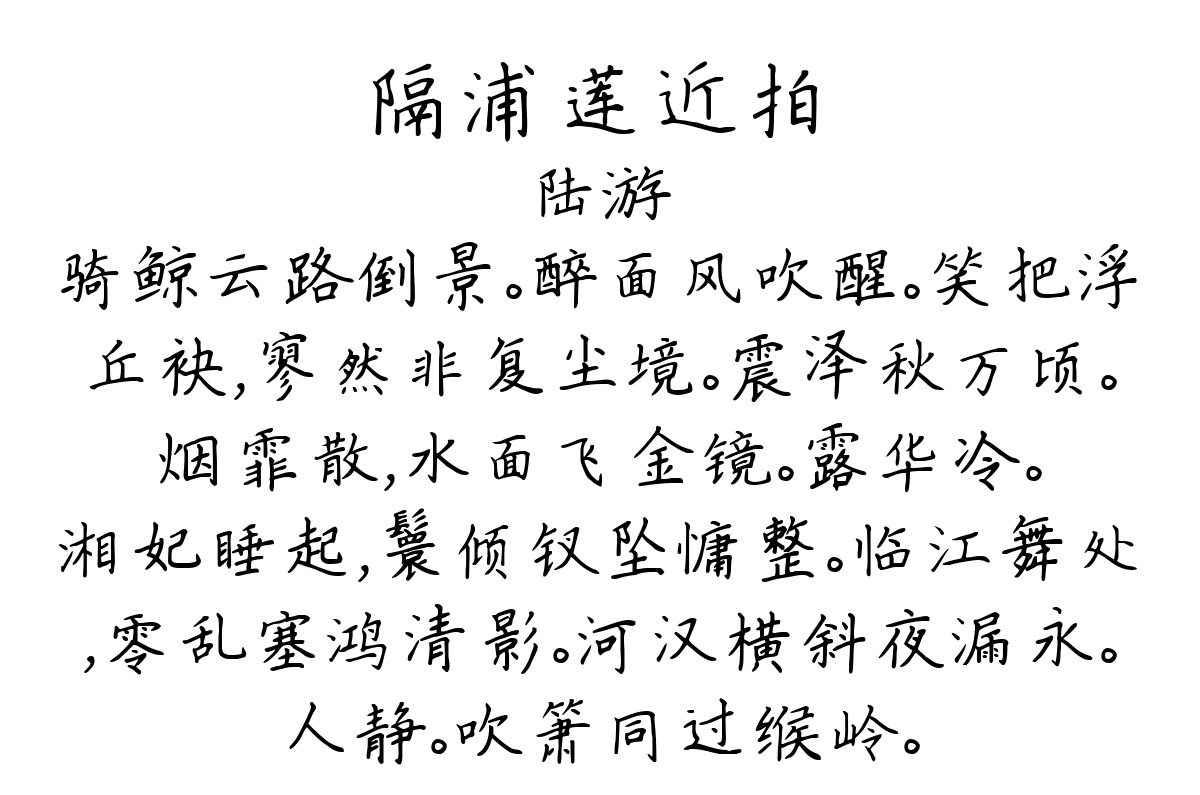 隔浦莲近拍
陆游
骑鲸云路倒景。醉面风吹醒。笑把浮
丘袂,寥然非复尘境。震泽秋万顷。
烟霏散,水面飞金镜。露华冷。
湘妃睡起,鬟倾钗坠慵整。临江舞处
,零乱塞鸿清影。河汉横斜夜漏永。
人静。吹箫同过缑岭。